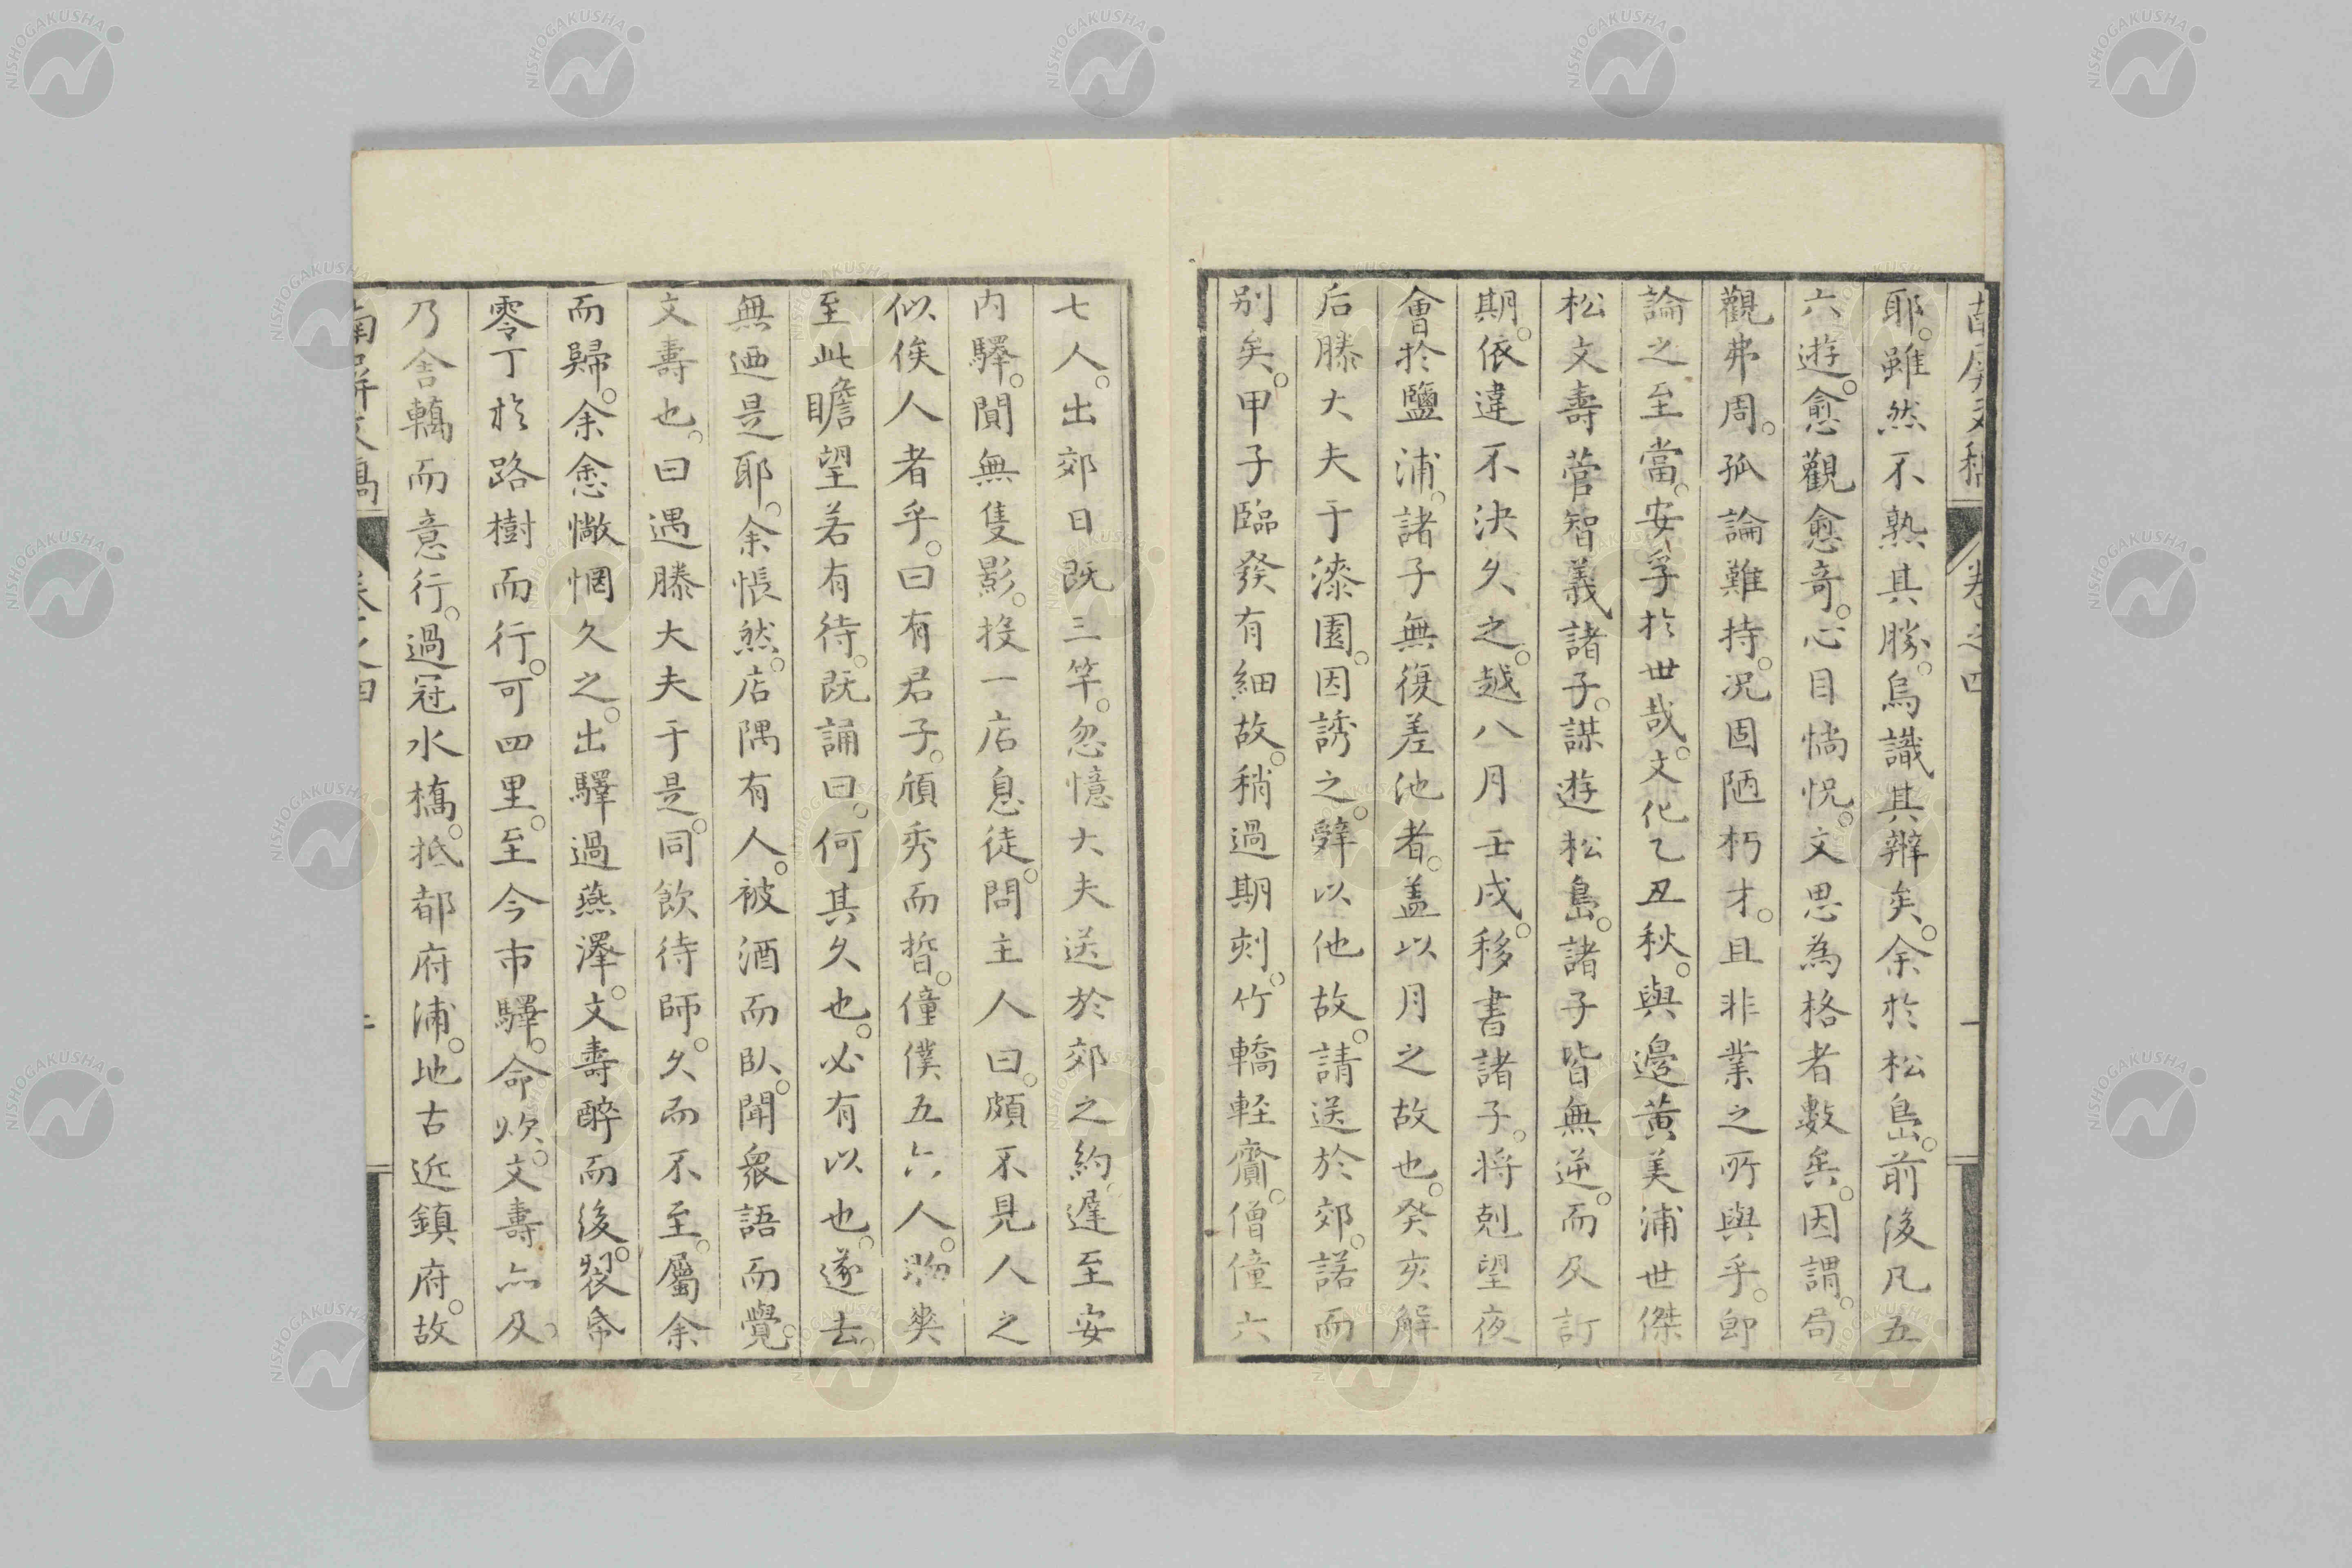 耶。雖然不熟其勝。烏識其辨矣。余於松島。前後凡五
六遊。愈觀愈奇。心目惝怳。文思為格者數矣。因謂。局
觀弗周。孤論難持。况固陋朽才。且非業之所與乎。郎
論之至當。安孚於世哉。文化乙丑秋。與邊黄美浦世傑
松文壽菅智義諸子。謀遊松島。諸子皆無逆。而久訂
期。依違不決久之。越八月壬戌。移書諸子。将剋望夜
會於鹽浦。諸子無復差池者。盖以月之故也。癸亥解
后滕大夫于漆園。因誘之。辤以他故。請送於郊。諾而
别矣。甲子臨發有細故。稍過期刻。竹轎軽齎。僧僮六
七人。出郊日既三竿。忽憶大夫送於郊之約。遅至安
内驛。閴無隻影。投一店息徒。問主人曰。頗不見人之
似俟人者乎。曰有君子。頎秀而晳。僮僕五六人。
至此瞻望若有待。既誦曰。何其久也。必有以也。遂去
無迺是耶。余悵然。店隅有人。被酒而臥。聞衆語而覺。
文壽也。曰遇滕大夫于是。同飲待師。久而不至。屬余
而歸。余悆惝惘久之。出驛過燕澤。文壽醉而後。裂帛
零丁於路樹而行。可四里。至今市驛。命炊。文壽亦及。
乃舎轎而意行。過冠水橋。抵都府浦。地古近鎮府。故